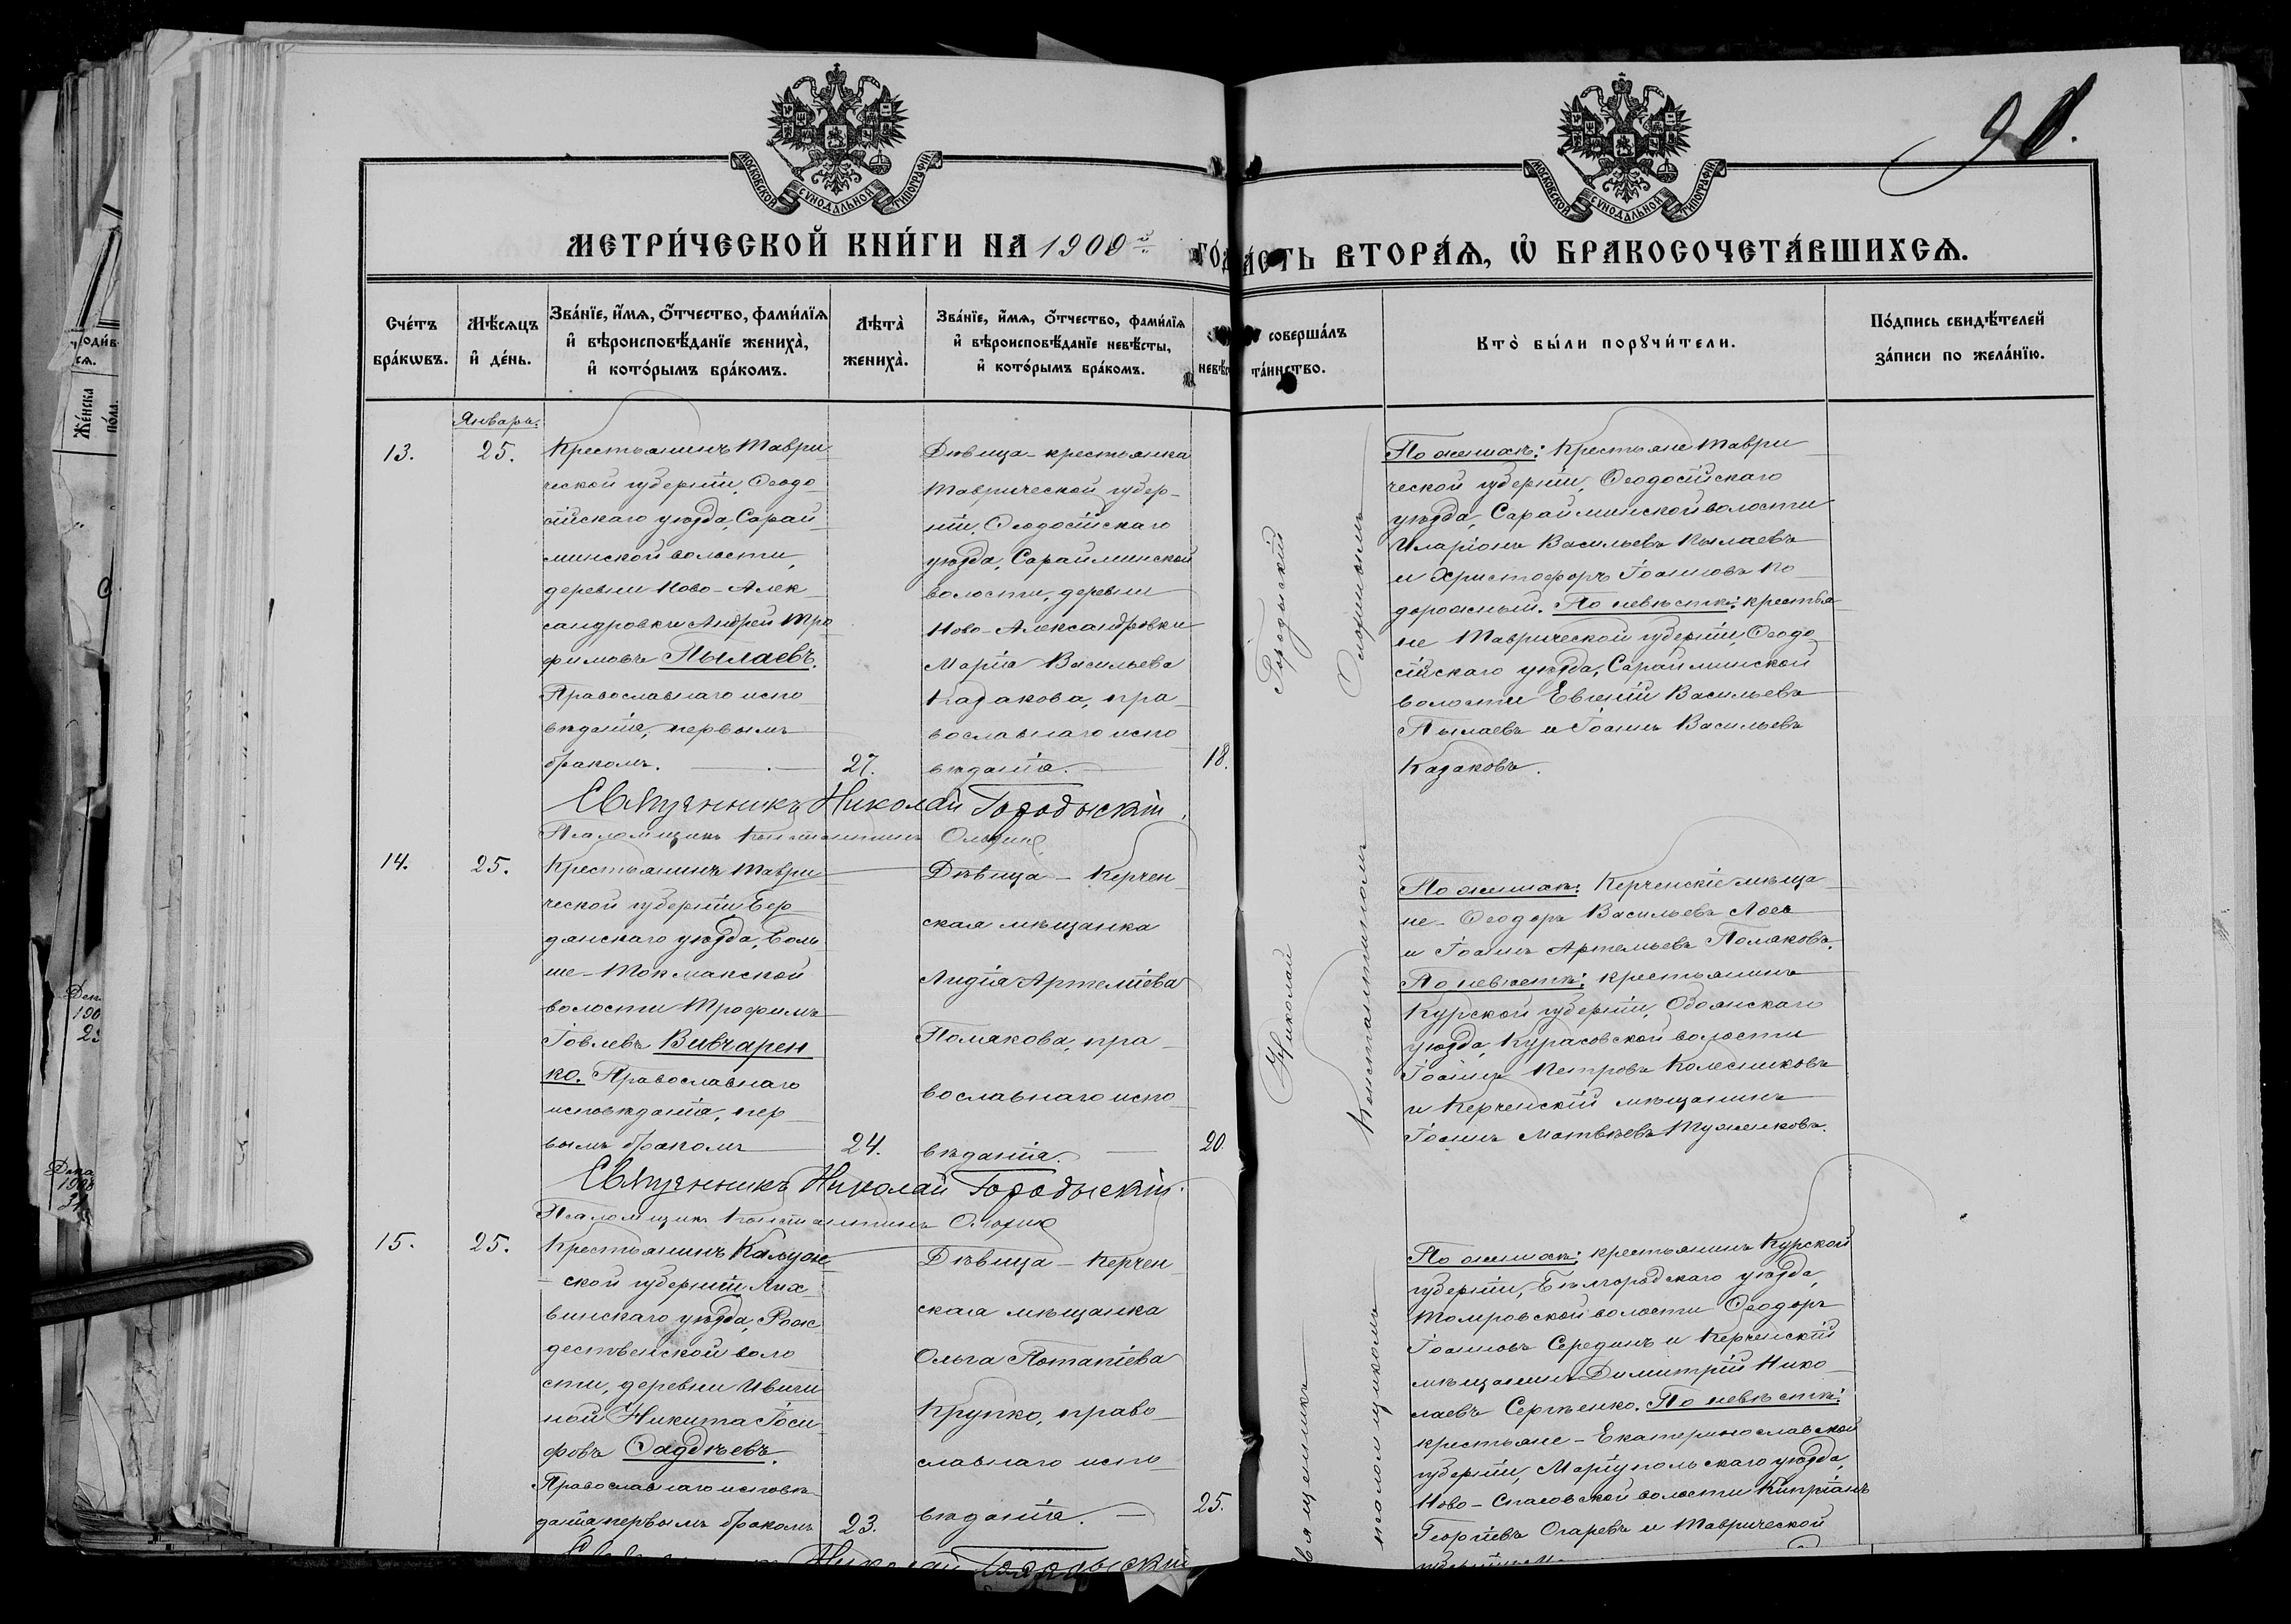 90.
МОСКОВСКОЙ СѴНОДАЛЬНОЙ ТИПОГРАФІИ
МОСКОВСКОЙ СѴНОДАЛЬНОЙ ТИПОГРАФІИ
МЕТРИ́ЧЕСКОЙ КНИ́ГИ НА 1909й ГО́Д
ЧА́СТЬ ВТОРА́Я, Ѡ БРАКОСОЧЕТА́ВШИХСЯ.
Сче́тъ бра́кѡвъ.
Мѣ́сяцъ и де́нь.
Зва́нїе, и́мя, о́тчество, фами́лїя
и вѣроисповѣ́данїе жениха̀,
и кото́рымъ бра́комъ.
Лѣта̀ жениха̀.
Зва́нїе, и́мя, о́тчество, фами́лїя
и вѣроисповѣ́данїе невѣ́сты,
и кото́рымъ бра́комъ.
невѣ́с
соверша́лъ
та́инство.
Кто̀ бы́ли порꙋчи́тели.
По́дпись свидѣ́телей
за́писи по жела́нїю.
Январь.
13.
25.
Крестьянинъ Таври
ческой губерніи, Ѳеодо
сійскаго уѣзда, Сарай
минской волости,
деревни Ново-Алек
сандровки Андрей Тро
фимовъ Пылаевъ.
Православнаго испо
вѣданія, первымъ
бракомъ.
27.
Дѣвица - крестьянка
Таврической губер-
ніи, Ѳеодосійскаго
уѣзда, Сарайминской
волости, деревни
Ново-Александровки
Марія Васильева
Казакова, пра
вославнаго испо
вѣданія.
18.
По женихѣ: Крестьяне Таври
ческой губерніи, Ѳеодосійскаго
уѣзда, Сарайминской волости
Иларіонъ Васильевъ Пылаевъ
и Христофоръ Іоанновъ По
дорожный. По невѣстѣ: крестья
не Таврической губерніи, Ѳеодо
сійскаго уѣзда, Сарайминской
волости Евгеній Васильевъ
Пылаевъ и Іоаннъ Васильевъ
Казаковъ.
Священникъ Николай Городыскій.
Псаломщикъ Константинъ
14.
25.
Крестьянинъ Таври
ческой губерніи Бер
дянскаго уѣзда, Боль
ше-Токмакской
волости Трофимъ
Іовлевъ Вивчарен
ко. Православнаго
исповѣданія, пер
вымъ бракомъ
24.
Дѣвица - Керчен
ская мѣщанка
Лидія Артеміева
Полякова, пра
вославнаго испо
вѣданія.
20.
По женихѣ: Керченскіе мѣща
не - Ѳеодоръ Васильевъ
и Іоаннъ Артемьевъ Поляковъ.
По невѣстѣ: крестьянинъ
Курской губерніи, Обоянскаго
уѣзда, Курасовской волости
Іоаннъ Петровъ Колесниковъ
и Керченскій мѣщанинъ
Іоаннъ Матвѣевъ
Священникъ Николай Городыскій.
Псаломщикъ Константинъ
15.
25.
Крестьянинъ Калуж
ской губерніи Лих
винскаго уѣзда, Рож
дественской воло
сти, деревни Ивичи
ной Никита Іоси
фовъ Фаддѣевъ.
Православнаго исповѣ
данія, первымъ бракомъ
23.
Дѣвица - Керчен
ская мѣщанка
Ольга Потапіева
Крупко, право
славнаго испо
вѣданія.
25.
По женихѣ: крестьянинъ Курской
губерніи, Бѣлгородскаго уѣзда,
Томаровской волости Ѳеодоръ
Іоанновъ Серединъ и Керченскій
мѣщанинъ Димитрій Нико
лаевъ Сергѣенко. По невѣстѣ:
крестьяне - Екатеринославской
губерніи, Маріупольскаго уѣзда,
Ново-Спасовской волости Кипріанъ
Георгіевъ Огаревъ и Таврической
Николай Городыскій
Священникъ Николай Городыскій
псаломщикомъ Константиномъ